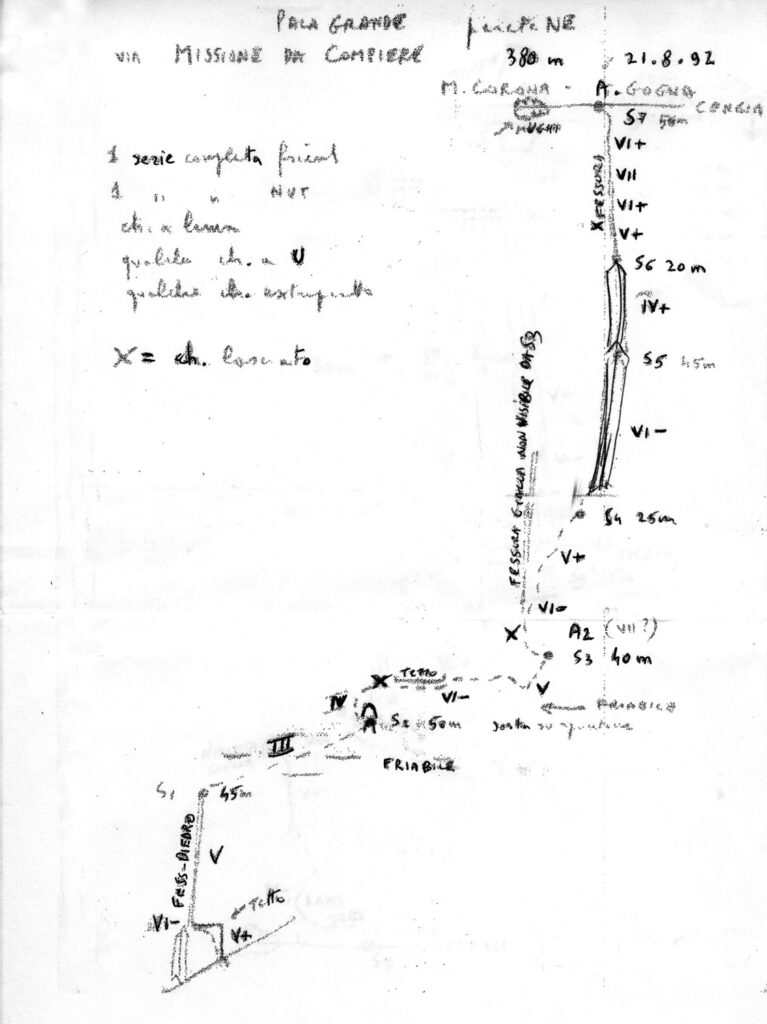 PALA GRANDE parete NE
VIA MISSIONE DA COMPIERE 380 m 21.8.92
M. CORONA - A. GOGNA
CENGIA
MUGHI
S7 50m
1 serie completa friend
1 " " NUT
ch. a lama
qualche ch. a U
qualche ch. extrapiatto
X = ch. lasciato
VI+
VII
VI+
V+
X FESSURA
S6 20m
IV+
S5 45m
VI-
FESSURA GIALLA NON VISIBILE DA S3
S4 25m
V+
VI-
X
A2 (VII?)
S3 40m
X TETTO
VI-
V
FRIABILE
IV
S2 50m sosta su spuntone
III
FRIABILE
S1 45m
FESS-DIEDRO
V
TETTO
VI-
V+